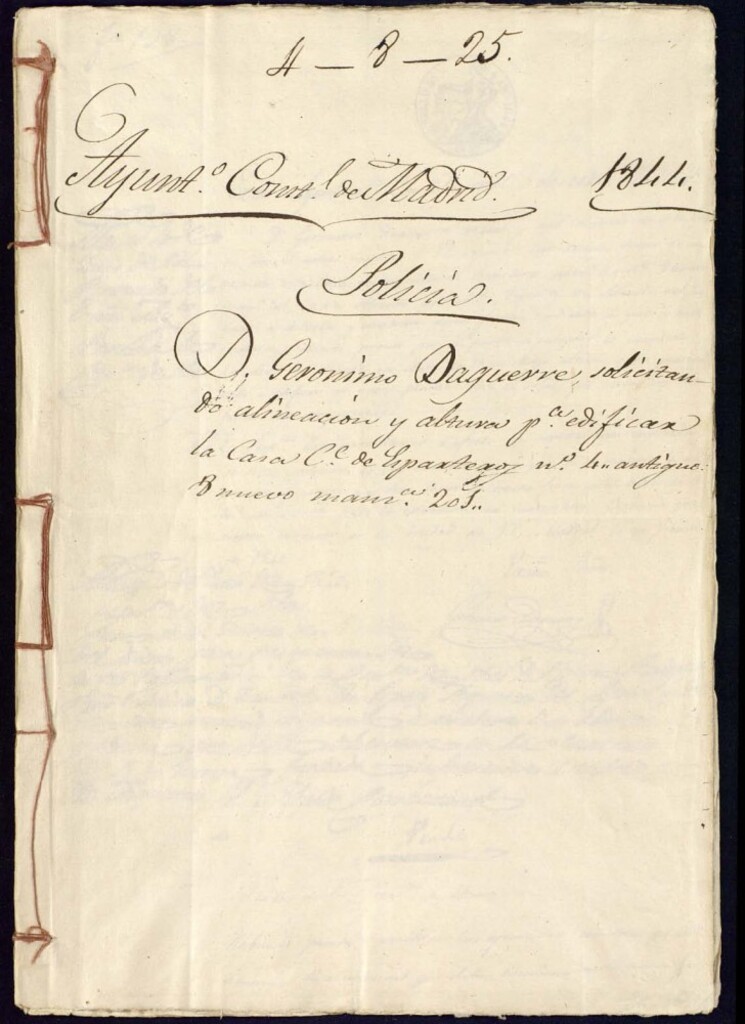 4 – 8 – 25.
Ayunt.º Const.l de Madrid. 1844.
Policia.
D. Geronimo Daguerre, solicitan-
do alineacion y altura p.a edificar
la Casa C.e de Esparteros n.º 4.. antiguo
8 nuevo manz.a 201..